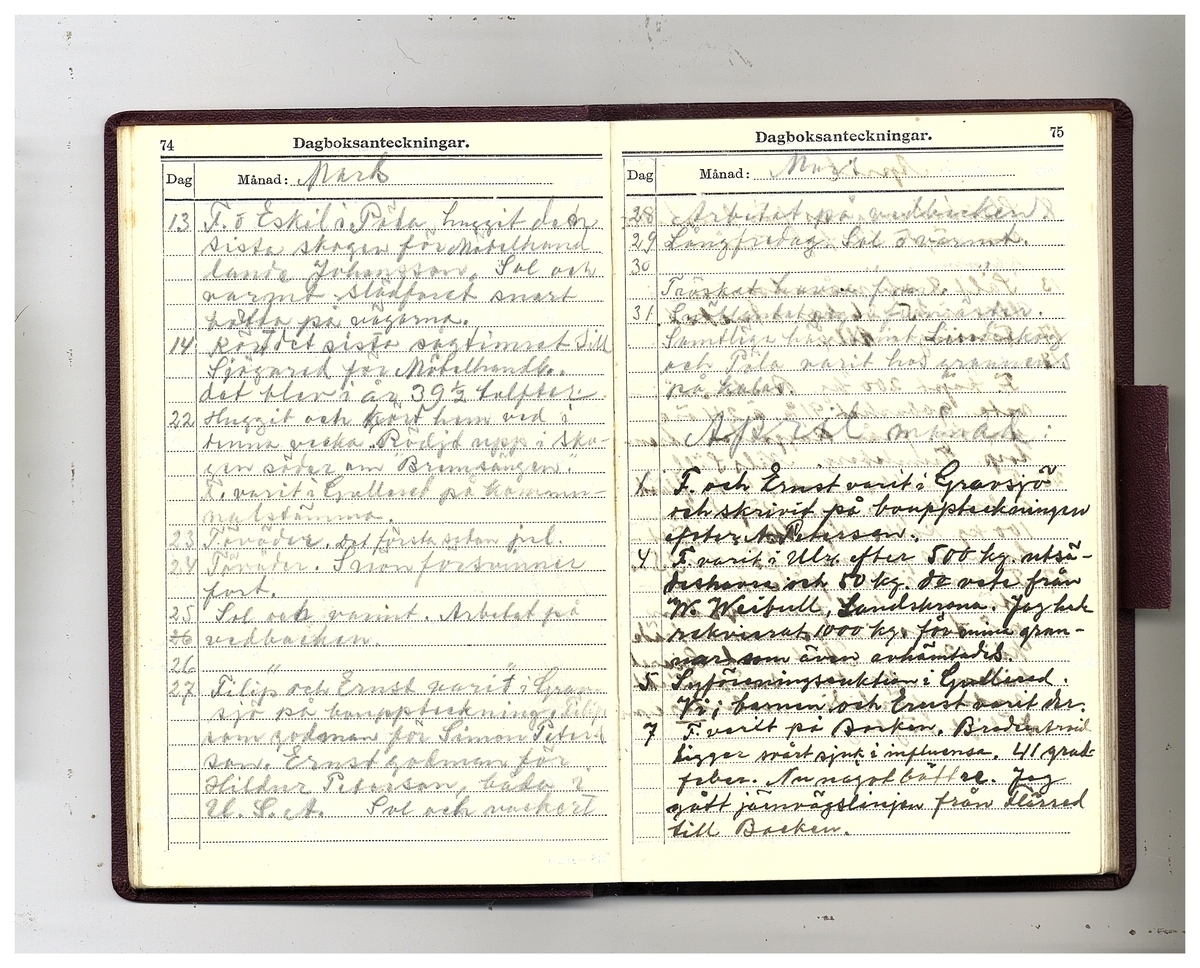 74 Dagboksanteckningar.
Dag Månad: Mars
13 F. o Eskil i Påta huggit den
sista skogen för Möbelhand
lande Johansson. Sol och
varmt slädföret snart
borta på vägarna.
14 Kört det sista sågtimret till
Sjögared för Möbelhandl.
det blev i år 39½ tolfter
22 Huggit och kört hem ved i
denna vecka. Rödjd upp i sko-
gen söder om "Bremsängen".
F. varit i Gullered på kommu-
nalstämma.
23 Töväder. det första sedan jul.
24 Töväder. Snön försvinner
fort.
25 Sol och varmt. Arbetat på
26 vedbacken.
26 " "
27 Filip och Ernst varit i Grav
sjö på bouppteckning Filip
som godman för Simon Peter-
son. Ernst godman för
Hildur Peterson, båda i
U. S. A. Sol och vackert
75 Dagboksanteckningar.
Dag Månad: Mars
28 Arbetat på vedbacken.
29 Långfredag. Sol o varmt.
30 " "
Tröskat havre
31
Samtliga här samt
och Påta varit hos grannens
på kalas.
April månad:
1 F. och Ernst varit i Gravsjö
och skrivit på bouppteckningen
efter A. Peterson.
4 F. varit i Ulr. efter 500 kg. utsä-
deshavre och 50 kg. do vete från
W. Weibull, Landskrona. Jag
rekvirerat 1000 kg. för mina gran-
nar som även avhämtades.
5 Syföreningsauktion i Gullered.
Vi; barnen och Ernst varit der.
7 F. varit på Backen. Broder
ligger svårt sjuk i influensa. 41 grad
feber. Nu något bättre. Jag
gått järnvägslinjen från Härred
till Backen.